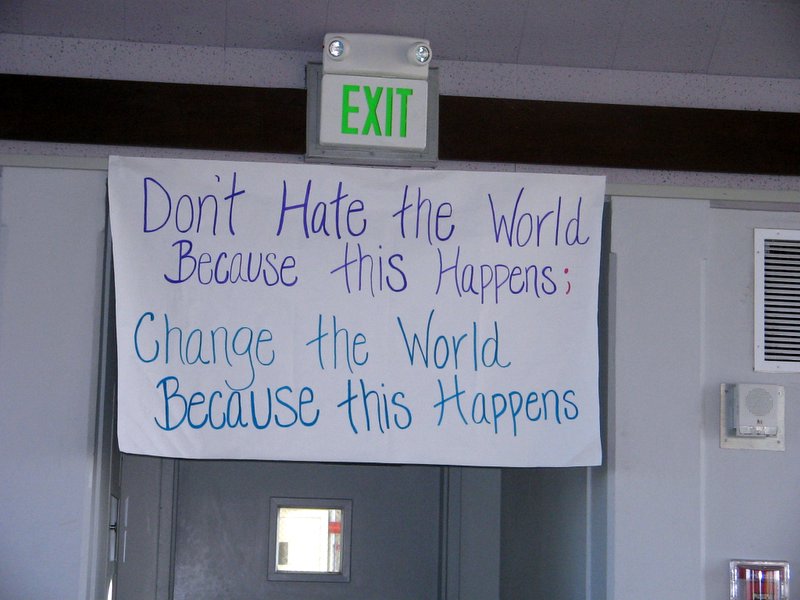 EXIT
Don't Hate the World
Because this Happens;
Change the World
Because this Happens